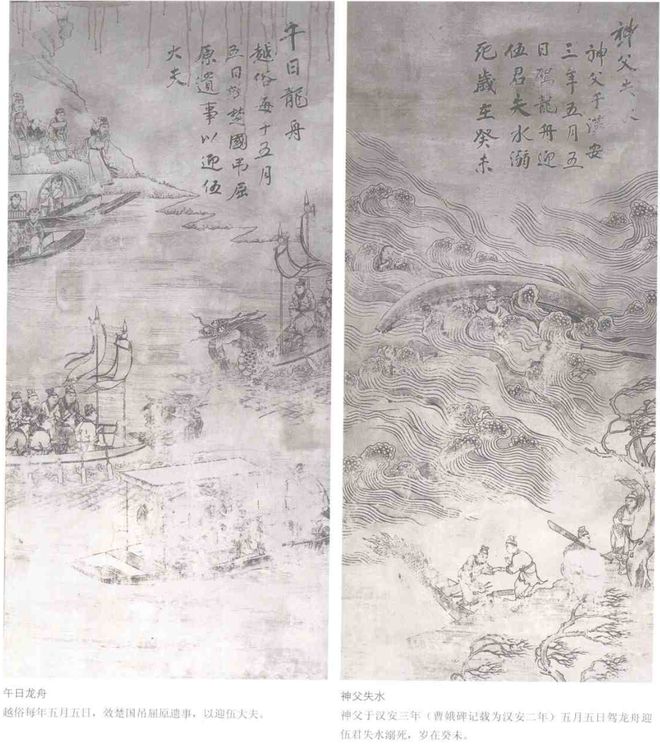 午日龍舟
越俗每十五月
五日效楚國吊屈
原遺事以迎伍
大夫
神父失水
神父于漢安
三年五月五
日駕龍舟迎
伍君失水溺
死歲在癸未
午日龙舟
越俗每年五月五日，效楚国吊屈原遗事，以迎伍大夫。
神父失水
神父于汉安三年（曹娥碑记载为汉安二年）五月五日驾龙舟迎
伍君失水溺死，岁在癸未。